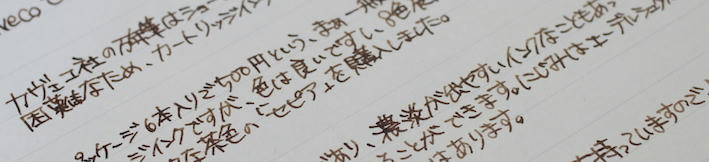 aveco
カヴェコ社の万年筆はショー
困難なため、カートリッジイン
ッケージ6本入りで500円という、まぁ一
ジインクですが、色は良いですし、8色
茶色の「セピア」を購入しました。
あり、濃淡が出やすいインクなこともあっ
ることができます。にじみは
はあります。
持っていますので